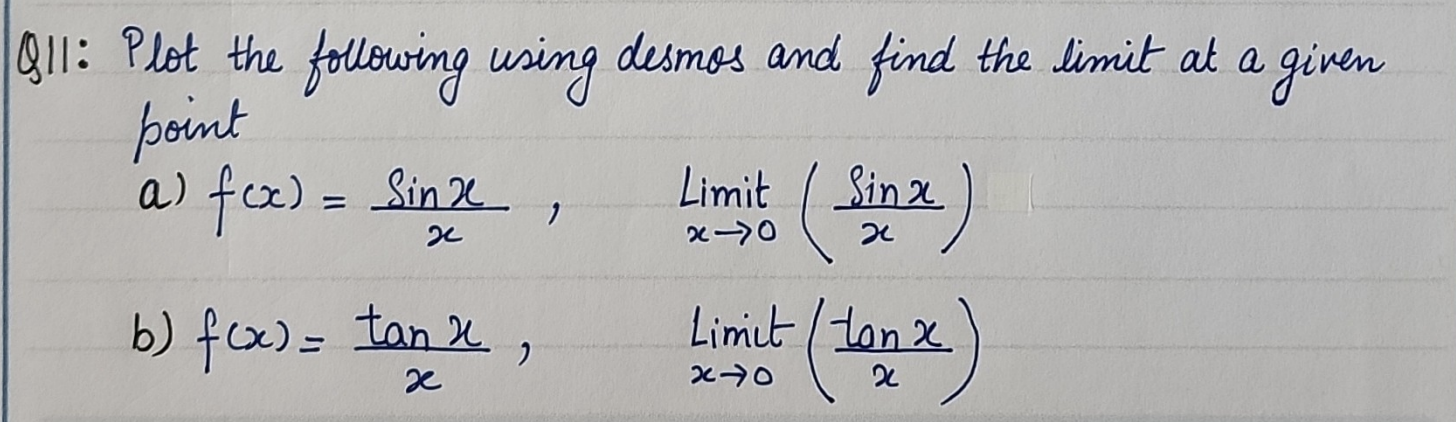 Q11: Plot the following using desmos and find the limit at a given
point
a) f(x) = Sin x / x , Limit x→0 (Sin x / x)
b) f(x) = tan x / x , Limit x→0 (tan x / x)